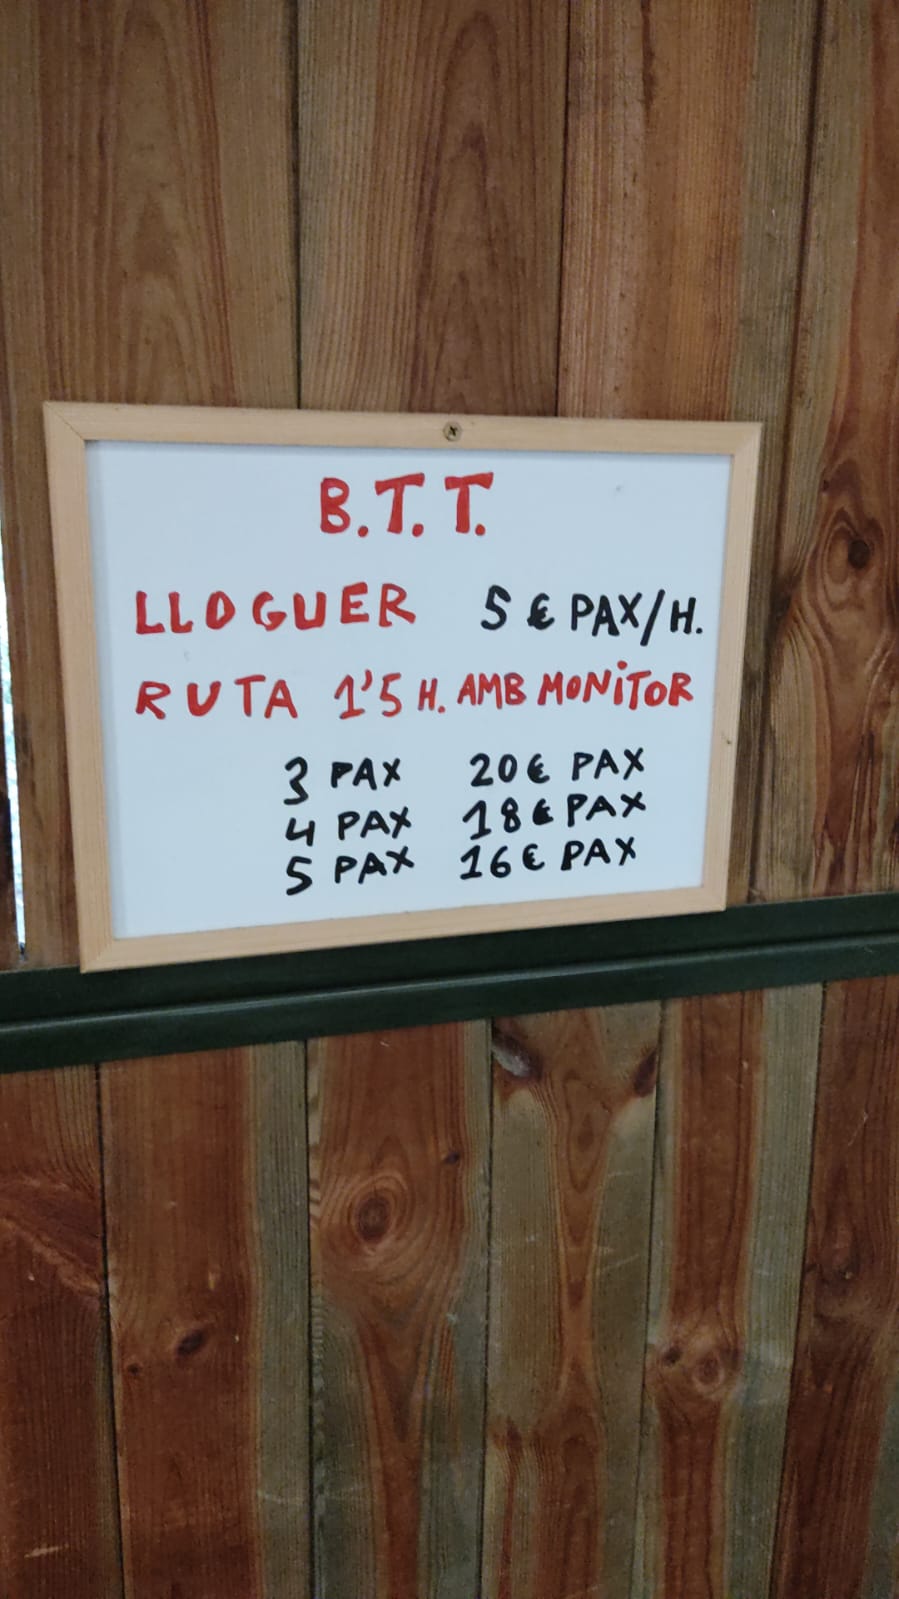 B.T.T.
LLOGUER 5 € PAX/H.
RUTA 1'5 H. AMB MONiTOR
3 PAX 20€ PAX
4 PAX 18€ PAX
5 PAX 16€ PAX